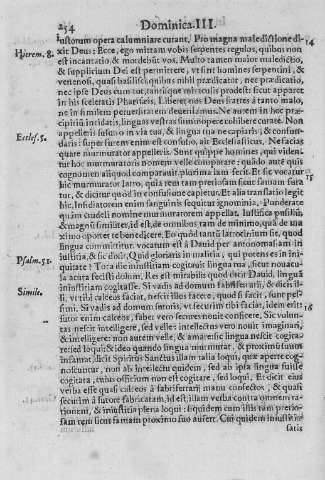 254 Dominica. III.
iustorum opera calumniare curant. Pro magna maledictione di- 14
Hierem. 8. xit Deus: Ecce, ego mittam vobis serpentes regulos, quibus non
est incantatio & mordebūt vos. Multo tamen maior maledictio,
& supplicium Dei est permittere, vt sint homines serpentini, &
venenosi, quasi basilisci, quibus nihil prædicatores, nec prædicatio,
nec ipse Deus cum tot, tantisque miraculis prodest: sicut apparet
in his sceleratis Phariseis. Liberet nos Deus fratres à tanto malo,
ne in similem peruersitatem deueniamus. Ne autem in hoc præ-
cipitiū incidatis, linguas vestras summopere cohibere curate. Non
Eccles. 5. appelleris susurro in vita tua, & lingua tua ne capiaris, & confun-
daris: super furem enim est confusio, ait Ecclesiasticus. Ne facias
quare murmurator appelleris. Sent quippe homines, qui viden-
tur hoc murmuratoris nomen velle comparare: quādo aute quis
cognomen aliquod comparauit, plurima iam fecit. Est & vocatur 15
hic murmurator latro, quia rem tam pretiosam sicut famam fura
tur, & dicitur quod in confusione capietur. Et alia translatio legit
hic. Insidiatorem enim sanguinis sequitur ignominia. Ponderate
quàm crudeli nomine murmuratorem appellat. Iustifica pusillū,
& magno similiter, id est, de omnibus tam de minimo, quà de ma
ximo oportet te benedicere. Eo quod tantū latrocinium sit, quod
lingua committitur. vocatum est à Dauid per antonomasiam in
Psalm. 51. iustitia, & sic dicit, Quid gloriaris in malitia, qui potens es in ini-
quitate? Tota die iniustitiam cogitauit lingua tua, sicut nouacu-
la acuta fecisti dolum. Res est mirabilis quod dicit Dauid, linguā
Simile. iniustitiam cogitasse. Si vadis ad domum fabri ferrarij, & dicis il-
li, vt tibi calceos faciat, nescit illos facere, quod si facit, sunt pes-
simi. Si vadis ad domum sutoris, vt securim tibi faciat, idem erit: 16
sutor enim calceos, faber vero secures nouit conficere, Sic volun-
tas nescit intelligere, sed velle: intellectus vero nouit imaginari,
& intelligere: non autem velle, & amare: sic lingua nescit cogita-
re: sed loqui: & ideo quando lingua murmurat, & proximū suum
infamat, dicit Spiritus Sanctus illam talia loqui, quæ aperte cog-
noscuntur, non ab intellectu quidem, sed ab ipsa lingua fuisse
cogitata, cuius officium non est cogitare, sed loqui. Et dicit eius
verba esse quasi calceos à fabri ferrarij manu confectos, & quasi
securim à sutore fabricatam, id est, illam verba contra omnem ra-
tionem, & iniustitia plena loqui: siquidem cum ista tam pretio-
sam rem sicut famam proximo suo aufert. Cui quidem iniustitiæ
satis